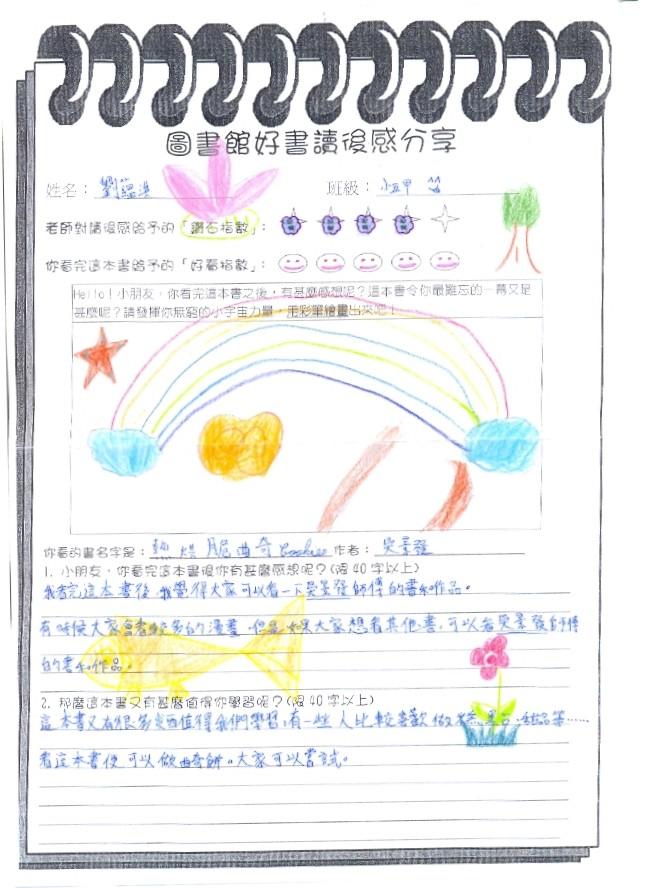 圖書館好書讀後感分享
姓名：劉蘊淇 班級：小五甲
老師對讀後感給予的「鑽石指數」：
你看完這本書給予的「好看指數」：
Hello！小朋友，你看完這本書之後，有甚麼感想呢？這本書令你最難忘的一幕又是
甚麼呢？請發揮你無窮的小宇宙力量，用彩筆繪畫出來吧！
你看的書名字是：熱烘脆曲奇Cookies 作者：吳景發
1. 小朋友，你看完這本書後你有甚麼感想呢？(限 40 字以上)
我看完這本書後，我覺得大家可以看一下吳景發師傅的書和作品。
有時候大家會看較多的漫畫，但是如果大家想看其他書，可以看吳景發師傅
的書和作品。
2. 那麼這本書又有甚麼值得你學習呢？(限 40 字以上)
這本書又有很多東西值得我們學習，有一些人比較喜歡做菜、蛋、甜品等……
看這本書便可以做曲奇餅。大家可以嘗試。